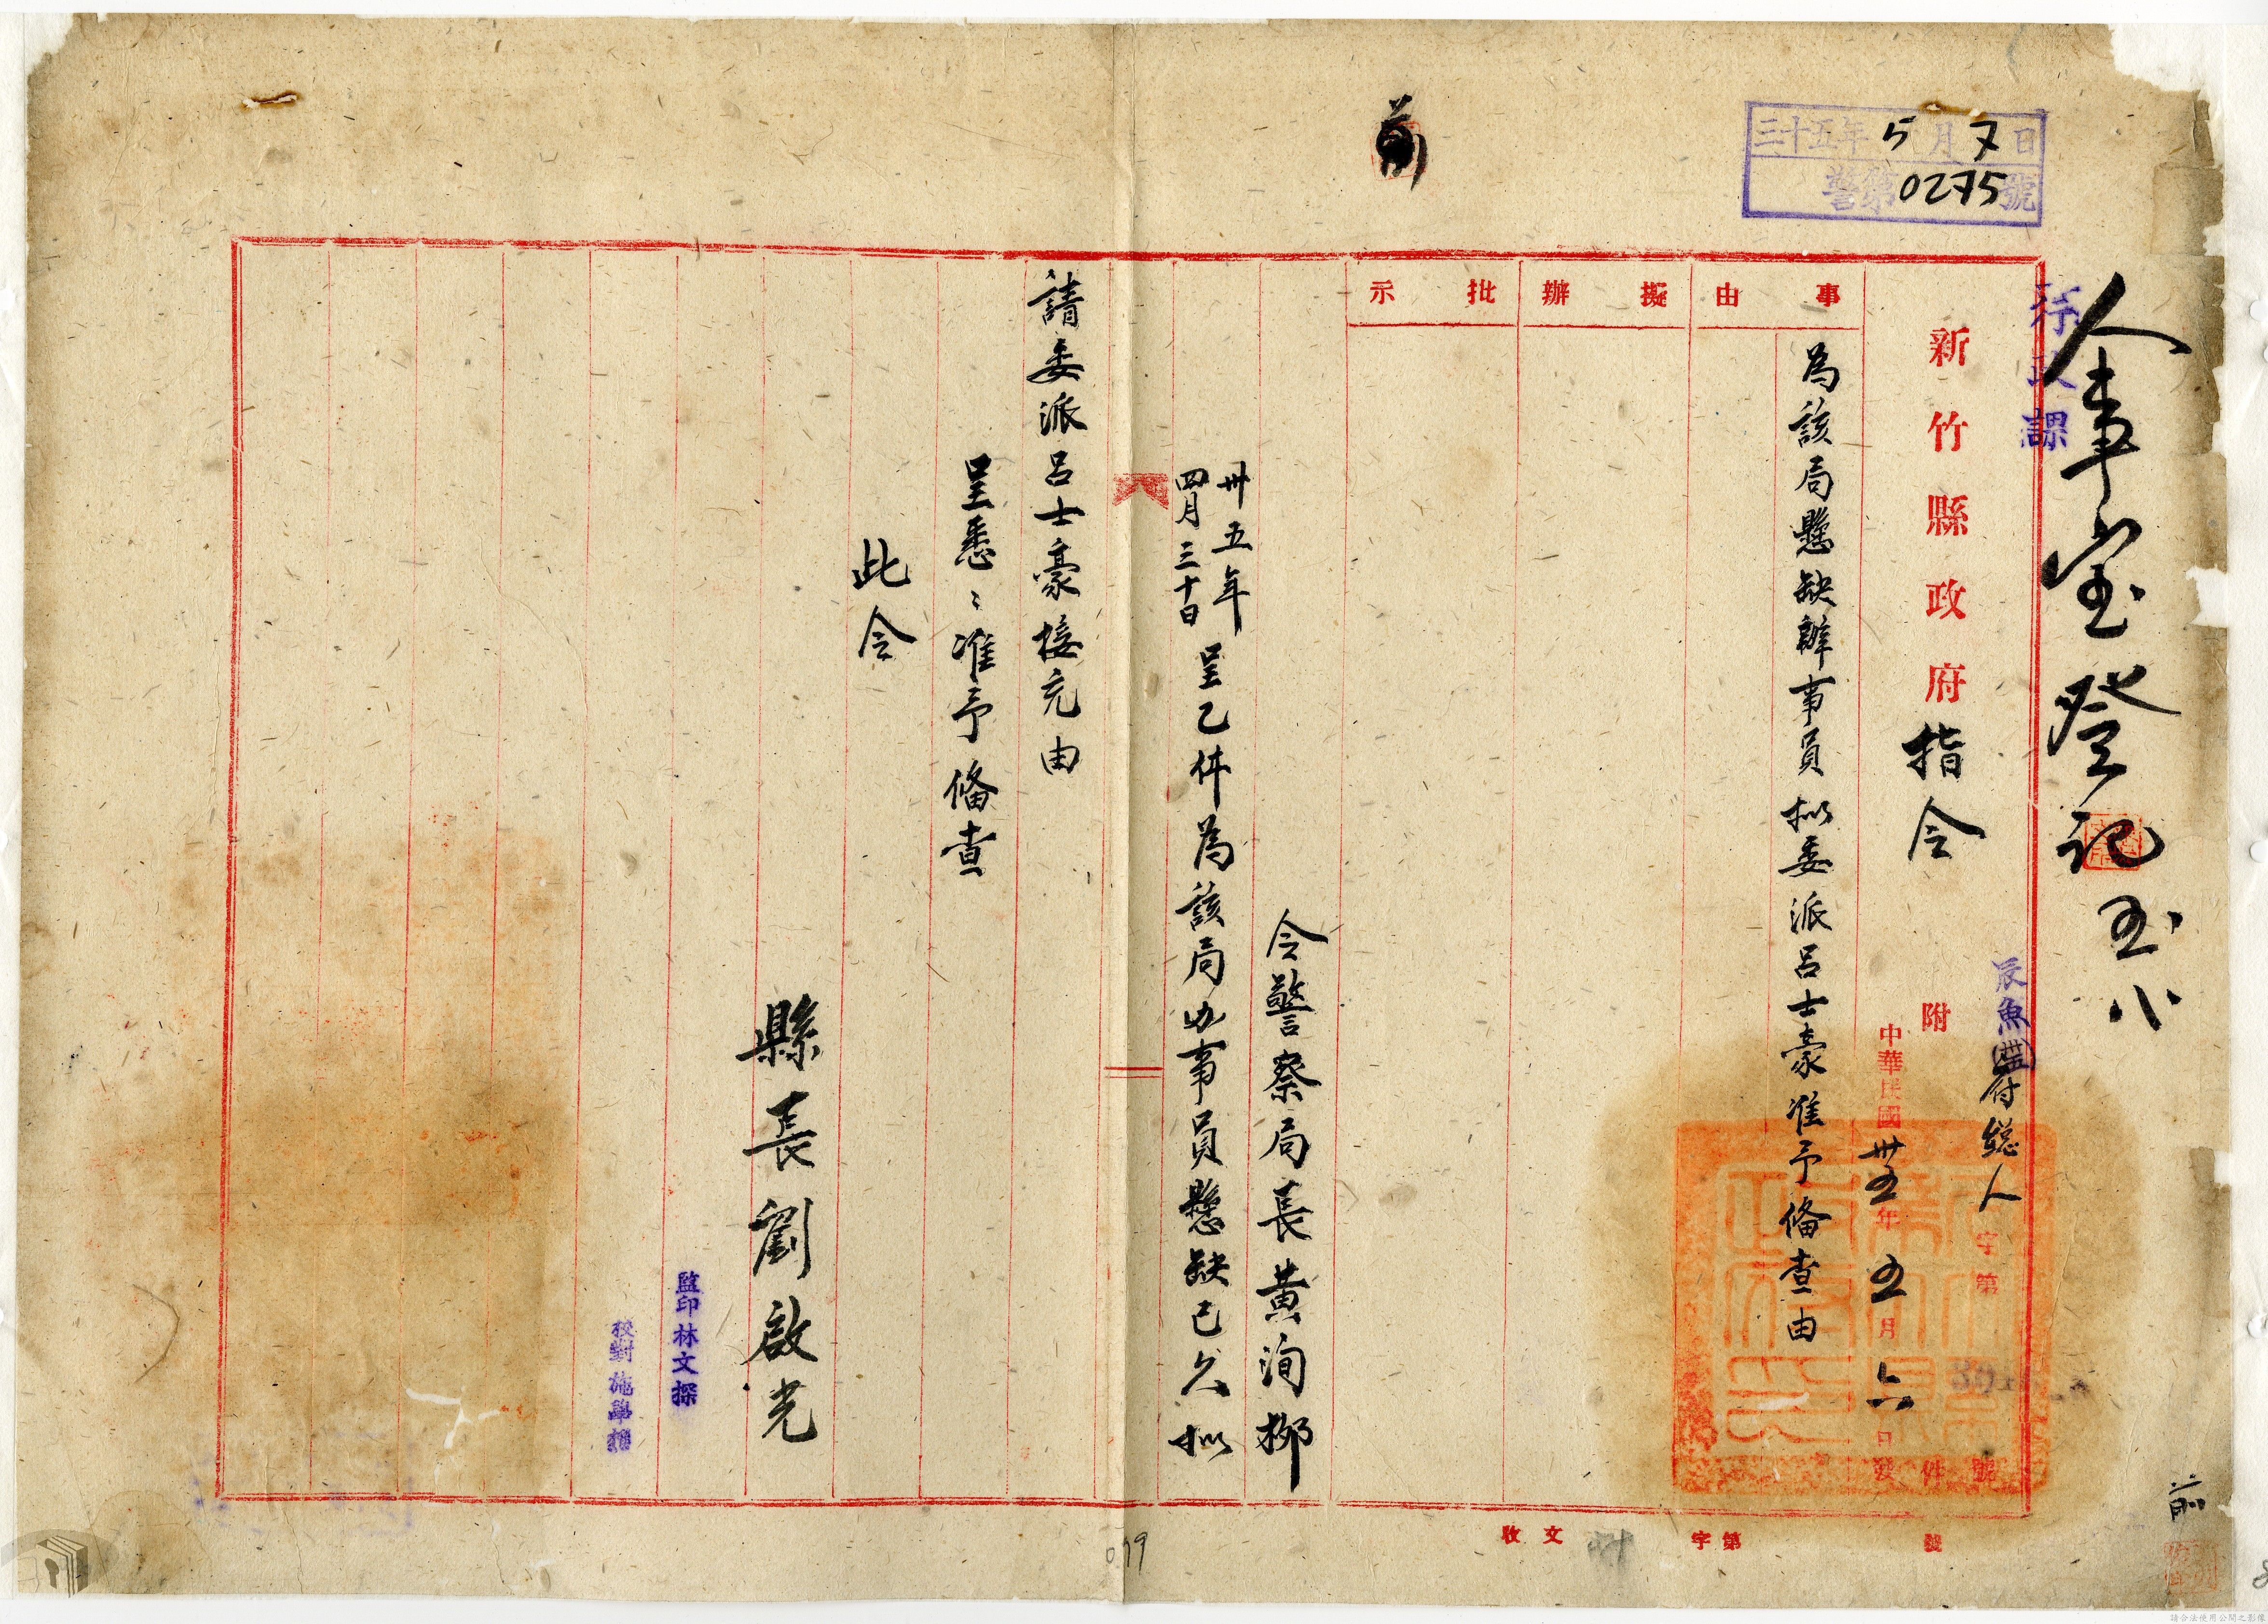 三十五年5月7日
警第0275號
前
行政課
人事室登記
五八
新竹縣政府指令
附
件
辰魚
府総人
字第
號
中華民國卅五年五月六日發
事由
為該局懸缺辦事員拟委派呂士豪准予俻查由
擬辦
批示
令警察局長黃洵柳
卅五年
四月三十日
呈乙件為該局办事員懸缺已久拟
請委派呂士豪接充由
呈悉、准予俻查
此令
縣長劉啟光
監印林文探
校對施
收文
字第
號
前
079
請合法使用公開之影像